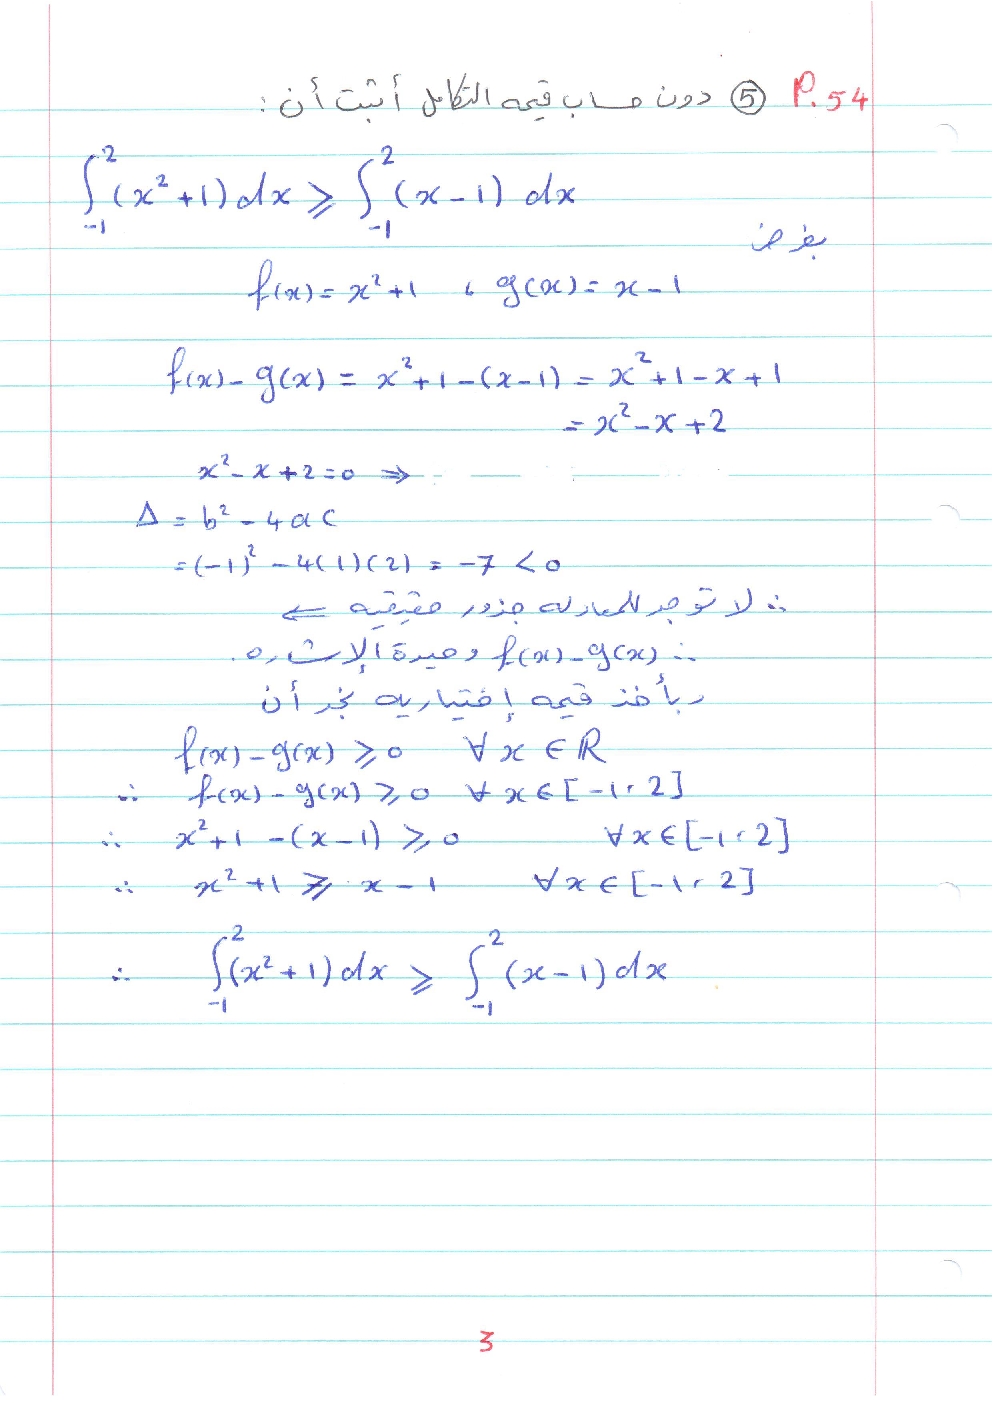 P. 54 ⑤ دون حساب قيمة التكامل أثبت أن :
∫₋₁² (x² + 1) dx ⩾ ∫₋₁² (x − 1) dx
بفرض
f(x) = x² + 1 ، g(x) = x − 1
f(x) − g(x) = x² + 1 − (x − 1) = x² + 1 − x + 1
= x² − x + 2
x² − x + 2 = 0 ⇒
Δ = b² − 4ac
= (−1)² − 4(1)(2) = −7 < 0
∴ لا توجد للمعادلة جذور حقيقية ⇐
∴ f(x) − g(x) وحيدة الإشارة.
بأخذ قيمة إختيارية نجد أن
f(x) − g(x) ⩾ 0 ∀ x ∈ ℝ
∴ f(x) − g(x) ⩾ 0 ∀ x ∈ [−1، 2]
∴ x² + 1 − (x − 1) ⩾ 0 ∀ x ∈ [−1، 2]
∴ x² + 1 ⩾ x − 1 ∀ x ∈ [−1، 2]
∴ ∫₋₁² (x² + 1) dx ⩾ ∫₋₁² (x − 1) dx
3